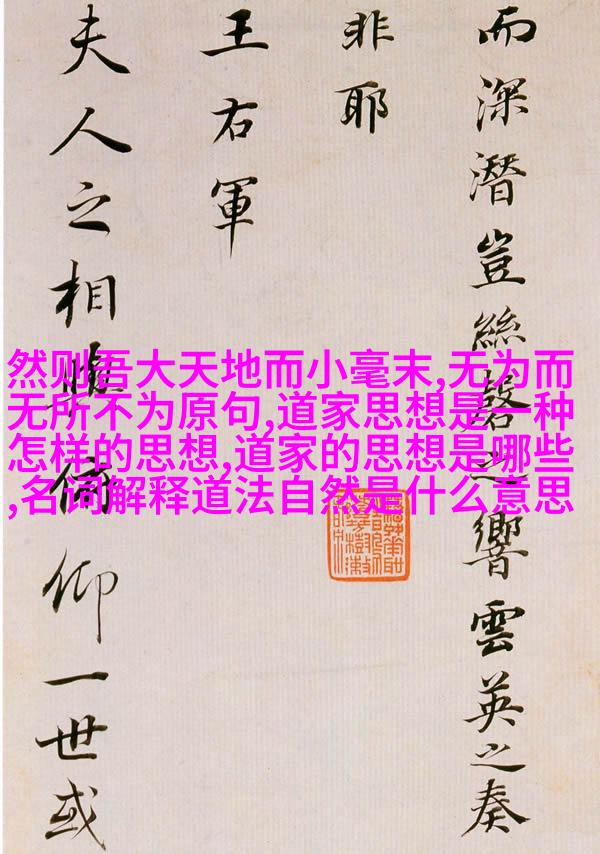 而深潛豈絲磬之響雲英之奏
非耶
王右軍
夫人之相與俯仰一世或
然则吾大天地而小毫末,无为而
无所不为原句,道家思想是一种
怎样的思想,道家的思想是哪些
,名词解释道法自然是什么意思